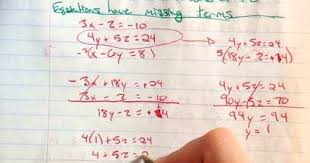 Equations have missing terms
3x - z = -10
4y + 5z = 24
-3(x - 6y = 8)
4y + 5z = 24
5(18y - z = 14)
-3x + 18y = +24
3x - z = -10
18y - z = +14
4y + 5z = 24
90y - 5z = 70
94y = 94
y = 1
4(1) + 5z = 24
4 + 5z = 2